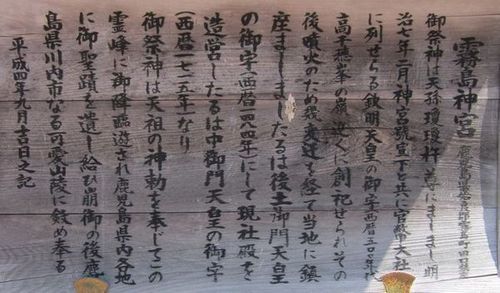 霧島神宮 鹿児島県姶良郡霧島町田口
御祭神は天孫瓊瓊杵尊にましまし明
治七年二月神宮號宣下と共に官幣大社
に列せらる欽明天皇の御宇西暦五〇〇年代
高千穂峯の嶺近くに創祀せられその
後噴火のため幾変遷を経て当地に鎮
座ましましたるは後土御門天皇
の御宇(西暦一四八四年)にして現社殿を
造営したるは中御門天皇の御宇
(西暦一七一五年)なり
御祭神は天祖の神勅を奉じてこの
霊峰に御降臨遊され鹿児島県内各地
に御聖蹟を遺し給ひ崩御の後鹿
島県川内市なる可愛山陵に斂め奉る
平成四年九月吉日之記